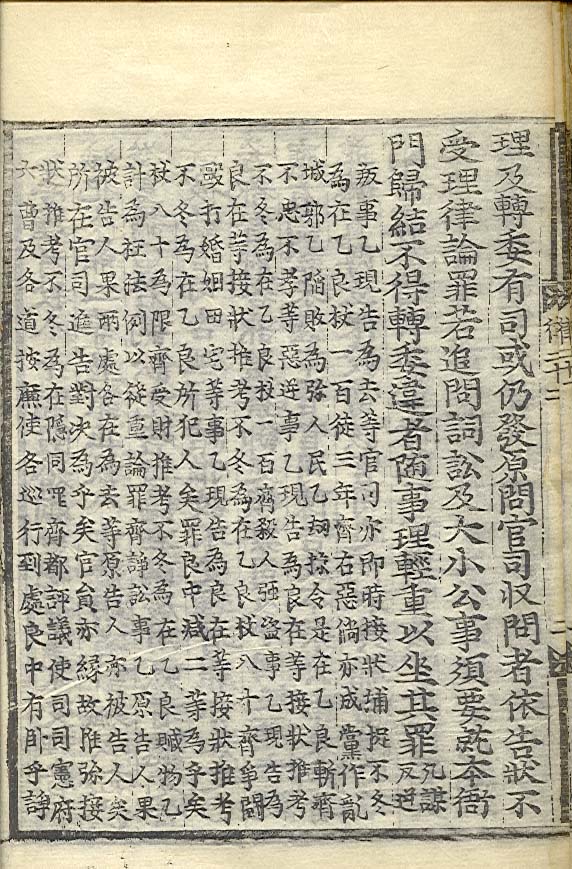 理及轉委有司或仍發原問官司収問者依告狀不
受理律論罪若追問詞訟及大小公事須要就本衙
門歸結不得轉委違者随事理輕重以坐其罪
凡謀
反逆
叛事乙現告為去等官司亦即時接狀埔捉不冬
為在乙良杖一百徒三年齊右惡徜亦成黨作亂
城郭乙陷敗為弥人民乙刼掠令是在乙良斬齊
不忠不孝等惡逆事乙現告為良在等接狀推考
不冬為在乙良杖一百齊殺人强盗事乙現告為
良在等接狀推考不冬為在乙良杖八十齊爭鬪
敺打婚姻田宅等事乙現告為良在等接狀推考
不冬為在乙良所犯人矣罪良中减二等為乎矣
杖八十為限齊受財推考不冬為在乙良贓物乙
計為枉法例以從重論罪齊諍訟事乙原告人果
被告人果兩處各在為去等原告人亦被告人矣
所在官司進告對决為乎矣官員亦縁故推弥接
狀推考不冬為在隱同罪齊都評議使司司憲府
六曹及各道按廉使各巡行到處良中有臥乎諍
律二十二